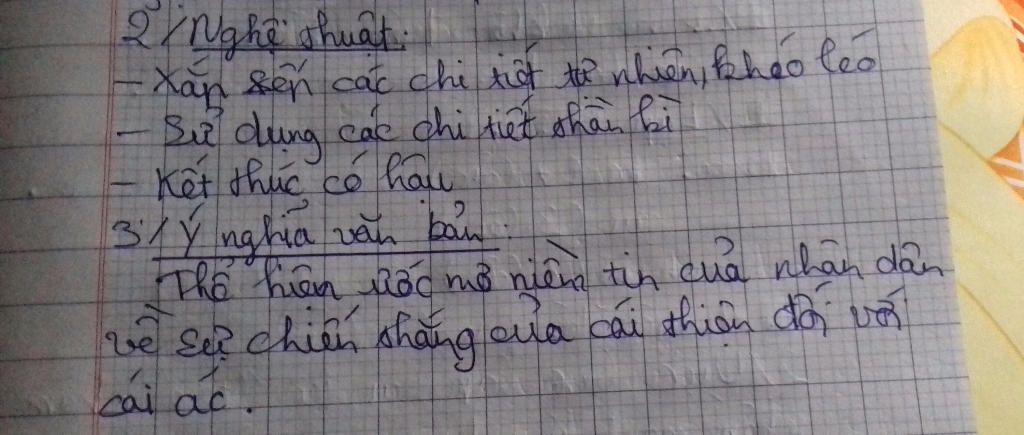 2/ Nghệ thuật:
- Xắp xếp các chi tiết tự nhiên, khéo léo
- Sử dụng các chi tiết thần kì
- Kết thúc có hậu
3/ Ý nghĩa văn bản:
Thể hiện ước mơ niềm tin của nhân dân
về sự chiến thắng của cái thiện đối với
cái ác.